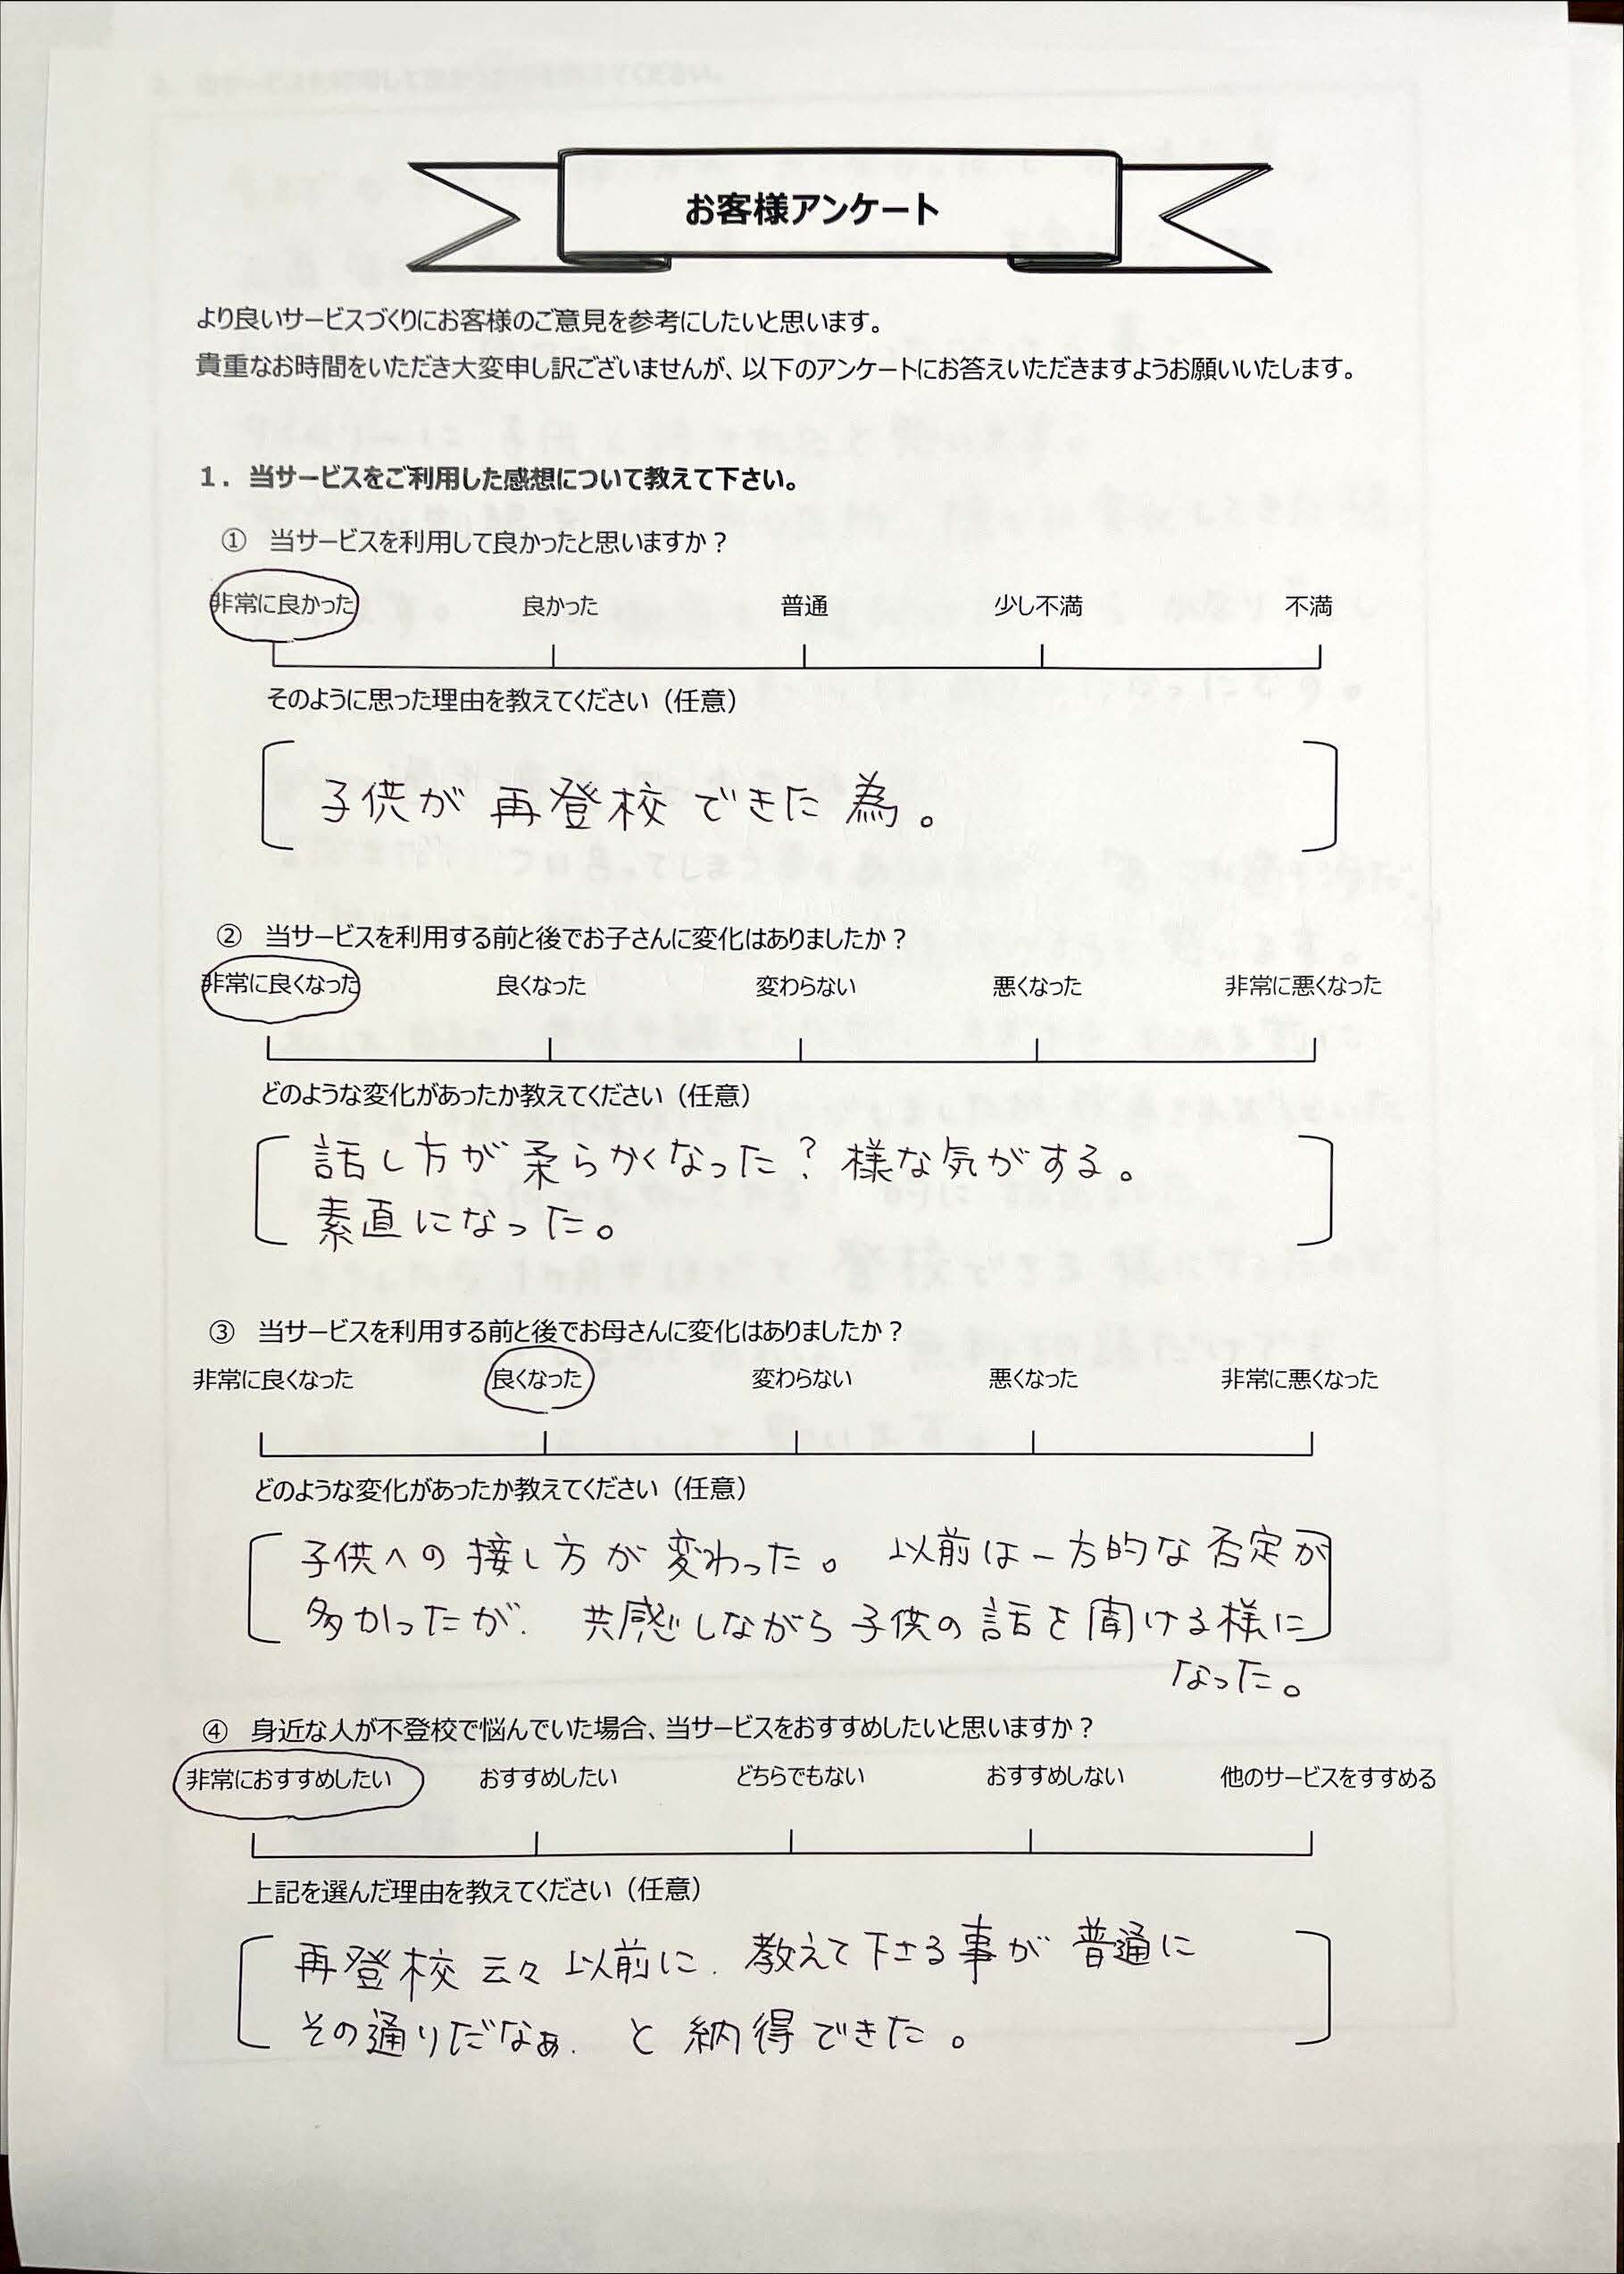 お客様アンケート
より良いサービスづくりにお客様のご意見を参考にしたいと思います。
貴重なお時間をいただき大変申し訳ございませんが、以下のアンケートにお答えいただきますようお願いいたします。
1．当サービスをご利用した感想について教えて下さい。
① 当サービスを利用して良かったと思いますか？
非常に良かった 良かった 普通 少し不満 不満
そのように思った理由を教えてください（任意）
子供が 再登校 できた 為。
② 当サービスを利用する前と後でお子さんに変化はありましたか？
非常に良くなった 良くなった 変わらない 悪くなった 非常に悪くなった
どのような変化があったか教えてください（任意）
話し方が柔らかくなった？様な気がする。
素直になった。
③ 当サービスを利用する前と後でお母さんに変化はありましたか？
非常に良くなった 良くなった 変わらない 悪くなった 非常に悪くなった
どのような変化があったか教えてください（任意）
子供への接し方が変わった。 以前は一方的な否定が
多かったが、 共感しながら子供の話を聞ける様に
なった。
④ 身近な人が不登校で悩んでいた場合、当サービスをおすすめしたいと思いますか？
非常におすすめしたい おすすめしたい どちらでもない おすすめしない 他のサービスをすすめる
上記を選んだ理由を教えてください（任意）
再登校云々以前に、教えて下さる事が普通に
その通りだなぁ、と納得できた。